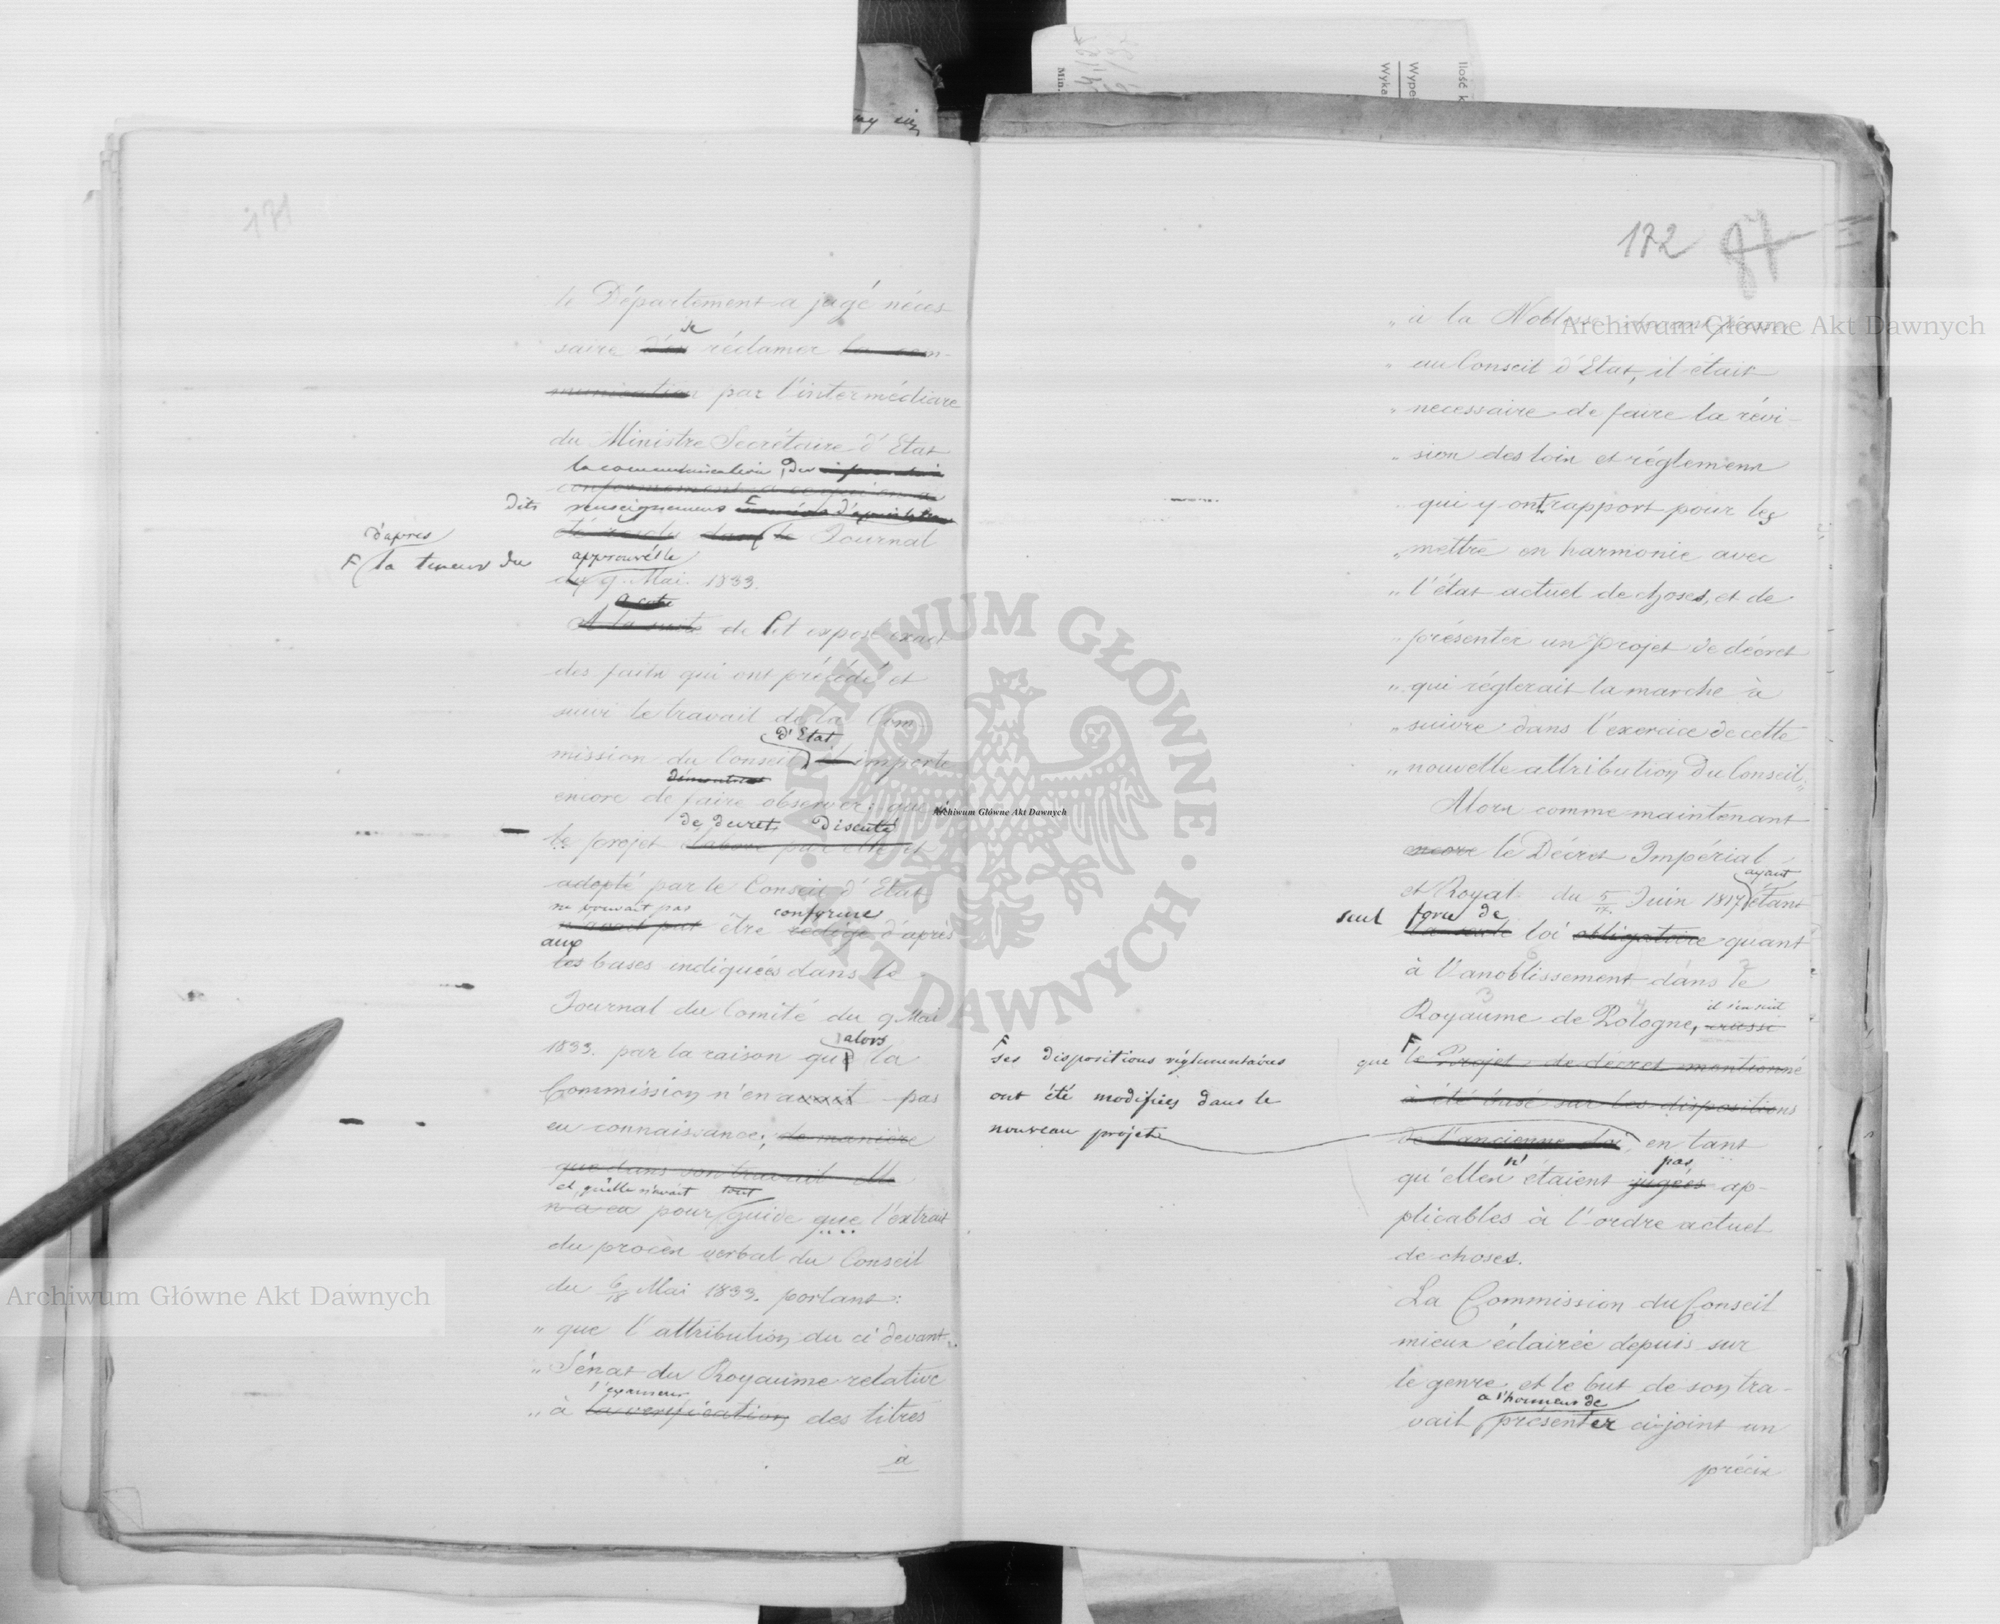 171
le Département a jugé néces-
saire d'en de réclamer la com-
munication par l'intermédiaire
du Ministre Secrétaire d'Etat
la communication, des
conformément à ce qui en a
dits renseignemens
été resolu dans le Journal
d'après
F la teneur du
approuvés le
du 9. Mai. 1833.
a cette
A la suite de cet exposé exact
des faits qui ont précédé et
suivi le travail de la Com-
d'Etat
mission du Conseil, il importe
démontrer
encore de faire observer: que
de decret discuté
le projet élaboré par elle et
adopté par le Conseil d'Etat
ne pouvait pas conforme
n'avait pas être rédigé d'après
aux
les bases indiquées dans le
Journal du Comité du 9 Mai
alors
1833. par la raison que la
Commission n'en avait pas
eu connaissance; de manière
que dans son travail elle
et qu'elle n'avait tout
n'a eu pour guide que l'extrait
du procès verbal du Conseil
du 6/18 Mai 1833. portant:
" que l'attribution du ci devant
" Sénat du Royaume relative
l'examen
" à la verification des titres
à
172 87
" à la Noblesse
" au Conseil d'Etat, il était
" necessaire de faire la révi-
" sion des loix et réglemens
" qui y ont rapport pour les
" mettre en harmonie avec
" l'état actuel de choses, et de
" présenter un projet de décret
" qui réglerait la marche à
" suivre dans l'exercice de cette
" nouvelle attribution du Conseil."
Alors comme maintenant
encore le Décret Impérial
ayant
et Royal du 5/17 Juin 1817 étant
seul force de
la seule loi obligatoire quant
à l'anoblissement dans le
Royaume de Pologne, aussi
il s'en suit
que F le Projet de décret mentionné
a été basé sur les dispositions
de l'ancienne loi, en tant
F
ses dispositions réglementaires
ont été modifiées dans le
nouveau projet
n' pas
qu'elles étaient jugées ap-
plicables à l'ordre actuel
de choses.
La Commission du Conseil
mieux éclairée depuis sur
le genre et le but de son tra-
a l'honneur de
vail présenter ci-joint un
précis
Archiwum Główne Akt Dawnych
Archiwum Główne Akt Dawnych
Archiwum Główne Akt Dawnych
ARCHIWUM GŁÓWNE · AKT DAWNYCH ·
Min.
Wyka
Wype
Ilość k